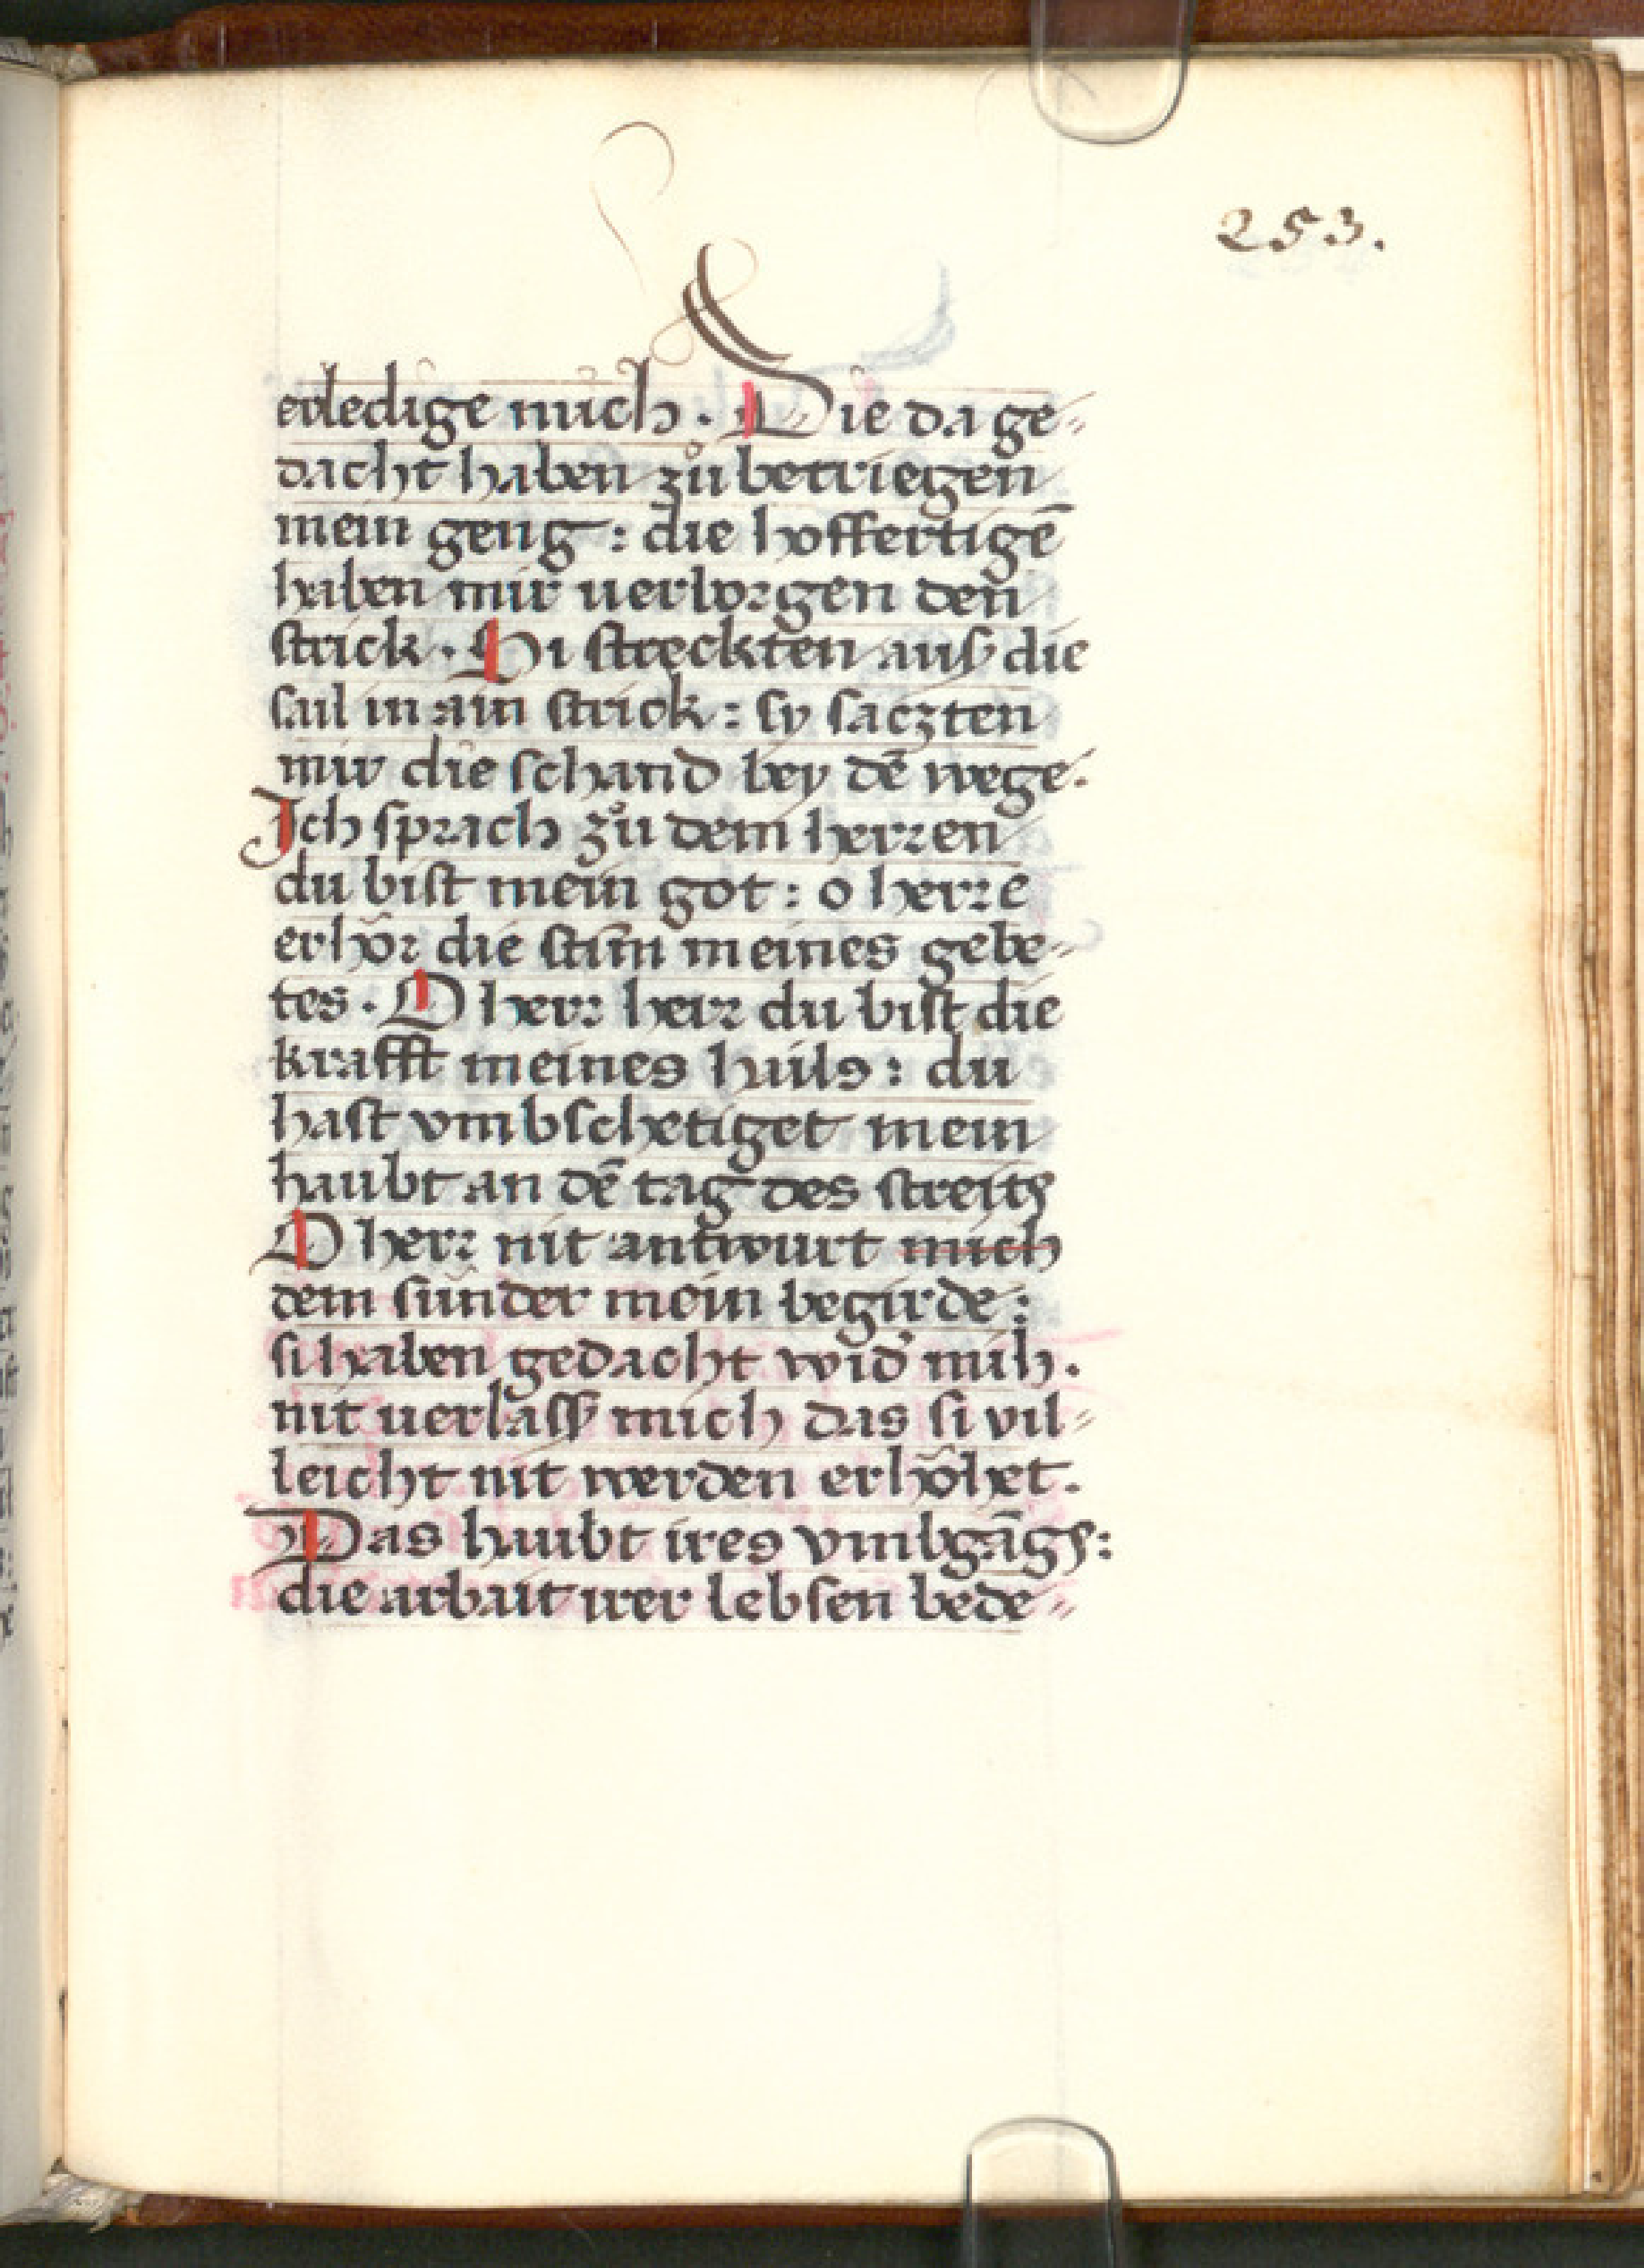 253.
erledige mich. Die da ge⸗
dacht haben zů betriegen
mein geng: die hoffertigē
haben mir uerborgen den
strick. Si streckten auß die
sail in ain strick: sy saczten
mir die schand bey dē wege.
Ich sprach zů dem herren
du bist mein got: o herre
erhör die stim̄ meines gebe⸗
tes. O herr herr du bist die
krafft meines hails: du
hast vmbschetiget mein
haubt an dē tag des streits
O herr nit antwurt mich
dem sünder mein begirde:
si haben gedacht wid' mih.
nit uerlaß mich das si vil⸗
leicht nit werden erhöhet.
Das haubt ires vmbgāgs:
die arbait irer lebsen bede⸗